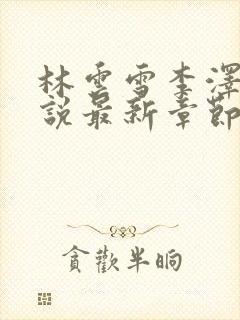 林雲雪李澤
說最新章節
貪歡半晌